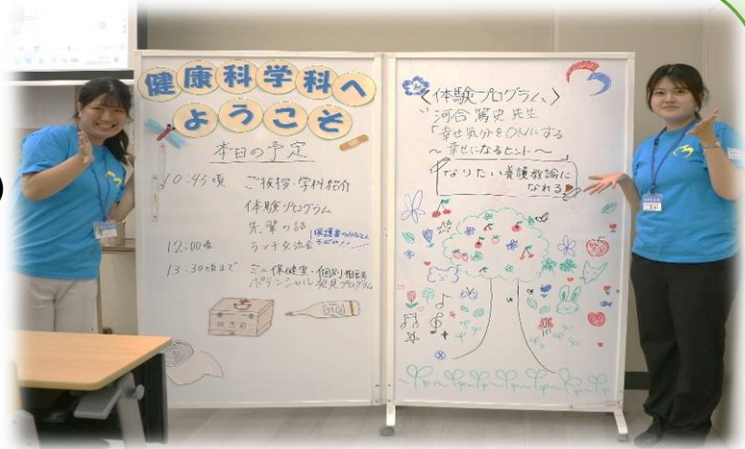 健康科学科へ
ようこそ
本日の予定
10:45頃 ご挨拶・学科紹介
体験プログラム
先輩の話
12:00頃 ランチ交流会
13:30頃まで ミニ保健室・個別相談
ポテンシャル発見プログラム
救急箱
<体験プログラム>
河合 篤史 先生
「幸せ気分をONにする
～幸せになるヒント～」
なりたい養護教諭に
なれる